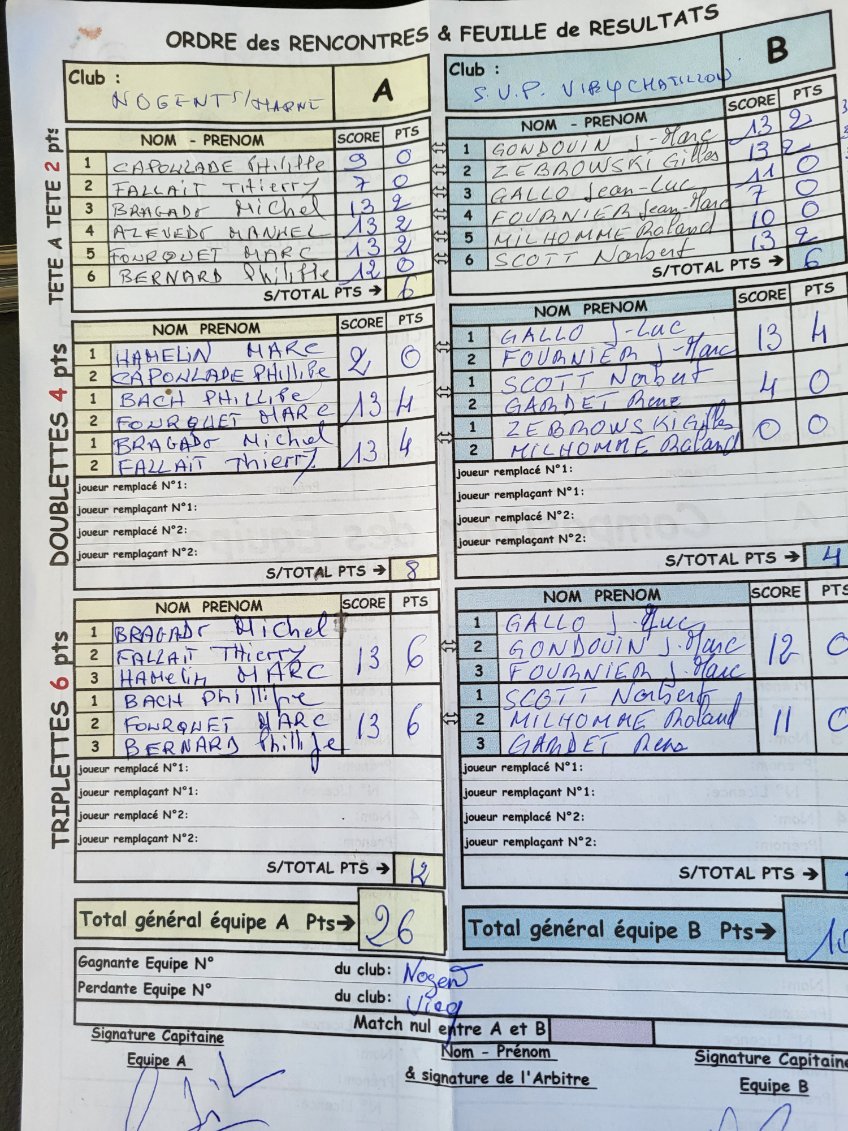 ORDRE des RENCONTRES & FEUILLE de RESULTATS
Club : NOGENT S/MARNE A
TETE A TETE 2 pts
NOM - PRENOM SCORE PTS
1 CAPOULADE Philippe 9 0
2 FALLAIT Thierry 7 0
3 BRAGADO Michel 13 2
4 AZEVEDO MANUEL 13 2
5 FOURQUET MARC 13 2
6 BERNARD Philippe 12 0
S/TOTAL PTS → 6
DOUBLETTES 4 pts
NOM PRENOM SCORE PTS
1 HAMELIN MARC
2 CAPOULADE Phillipe 2 0
1 BACH PHILLIPE
2 FOURQUET MARC 13 4
1 BRAGADO Michel
2 FALLAIT Thierry 13 4
joueur remplacé N°1:
joueur remplaçant N°1:
joueur remplacé N°2:
joueur remplaçant N°2:
S/TOTAL PTS → 8
TRIPLETTES 6 pts
NOM PRENOM SCORE PTS
1 BRAGADO Michel
2 FALLAIT Thierry 13 6
3 HAMELIN MARC
1 BACH Phillipe
2 FOURQUET MARC 13 6
3 BERNARD Phillipe
joueur remplacé N°1:
joueur remplaçant N°1:
joueur remplacé N°2:
joueur remplaçant N°2:
S/TOTAL PTS → 12
Total général équipe A Pts→ 26
Club : S.U.P. VIRY CHATILLON B
NOM - PRENOM SCORE PTS
1 GONDOUIN J-Marc 13 2
2 ZEBROWSKI Gilles 13 2
3 GALLO Jean-Luc 11 0
4 FOURNIER Jean-Marc 7 0
5 MILHOMME Roland 10 0
6 SCOTT Norbert 13 2
S/TOTAL PTS → 6
NOM PRENOM SCORE PTS
1 GALLO J-Luc
2 FOURNIER J-Marc 13 4
1 SCOTT Norbert
2 GARDET Rene 4 0
1 ZEBROWSKI Gilles
2 MILHOMME Roland 0 0
joueur remplacé N°1:
joueur remplaçant N°1:
joueur remplacé N°2:
joueur remplaçant N°2:
S/TOTAL PTS → 4
NOM PRENOM SCORE PTS
1 GALLO J-Luc
2 GONDOUIN J-Marc 12 0
3 FOURNIER J-Marc
1 SCOTT Norbert
2 MILHOMME Roland 11 0
3 GARDET Rene
joueur remplacé N°1:
joueur remplaçant N°1:
joueur remplacé N°2:
joueur remplaçant N°2:
S/TOTAL PTS →
Total général équipe B Pts→ 10
Gagnante Equipe N° du club: Nogent
Perdante Equipe N° du club: Viry
Match nul entre A et B
Signature Capitaine
Equipe A
Nom - Prénom
& signature de l'Arbitre
Signature Capitaine
Equipe B